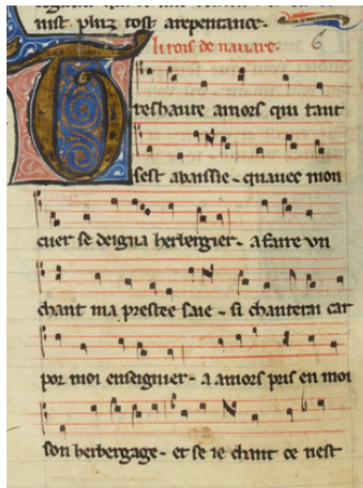 nist pluz tost arepentance.
li rois de nauare. 6
Treshaute amors qui tant
sest abaissie - quauec mon
cuer se deigna herbergier - a faire vn
chant ma prestee saie - si chanterai car
por moi enseignier - a amors pris en moi
son herbergage - et se ie chant ce nest